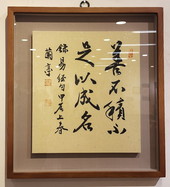 善不積不
足以成名
錄易經句甲辰上春
蘭亭